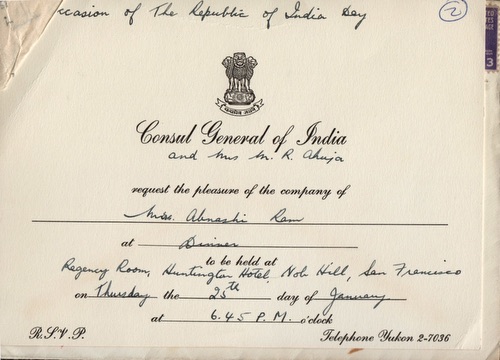 Occasion of The Republic of India Day
2
3
Consul General of India
and Mrs M. R. Ahuja
request the pleasure of the company of
Miss. Abnashi Ram
at Dinner
to be held at
Regency Room, Huntington Hotel, Nob Hill, San Francisco
on Thursday the 25th day of January
at 6.45 P.M. o'clock
R.S.V.P. Telephone Yukon 2-7036